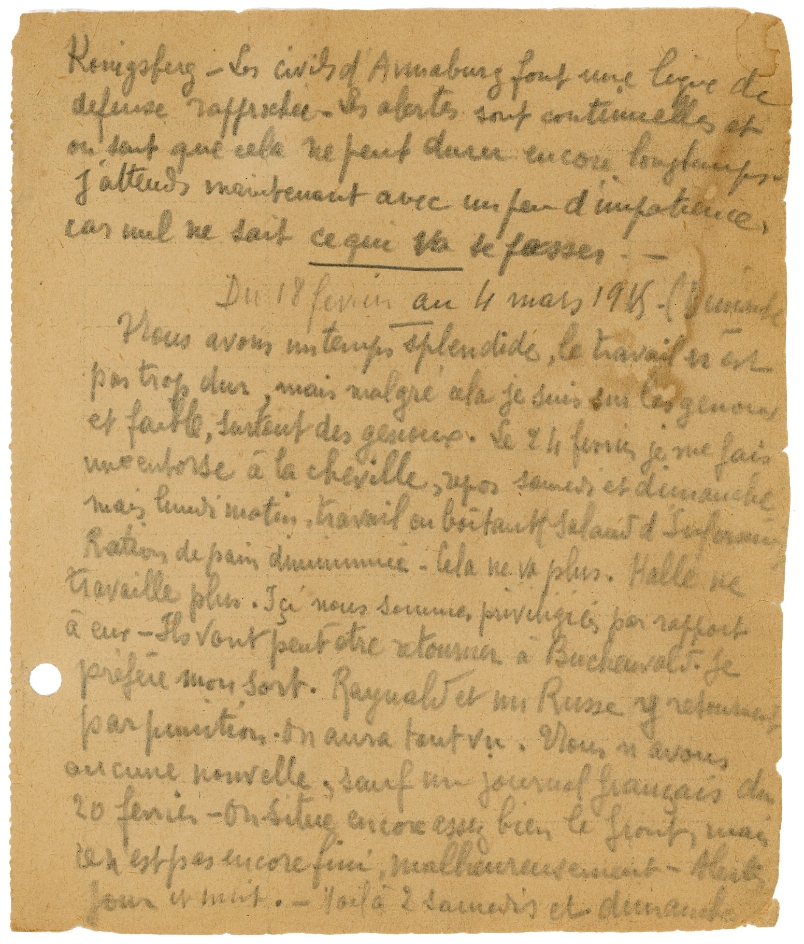 Konigsberg – Les civils d'Annaburg font une ligne de
defense rapprochée. Les alertes sont continuelles et
on sent que cela ne peut durer encore longtemps.
J'attends maintenant avec un peu d'impatience,
car nul ne sait ce qui va se passer. —
Du 18 fevrier au 4 mars 1945 – (Dimanche
Nous avons un temps splendide, le travail n'est
pas trop dur, mais malgré cela je suis sur les genoux
et faible, surtout des genoux. Le 24 fevrier je me fais
une entorse à la cheville, repos samedi et dimanche
mais lundi matin, travail en boitant (salaud d'
Ration de pain diminuée – Cela ne va plus. Halle ne
travaille plus. Içi nous sommes privilégiés par rapport
à eux – Ils vont peut être retourner à Buchenwald. Je
préfère mon sort. Raynald et un Russe y retournent
par punition. On aura tout vu. Nous n'avons
aucune nouvelle, sauf un journal français du
20 fevrier – On situe encore assez bien le front, mais
ce n'est pas encore fini, malheureusement – Alertes
jour et nuit. – Voilà 2 samedis et dimanches